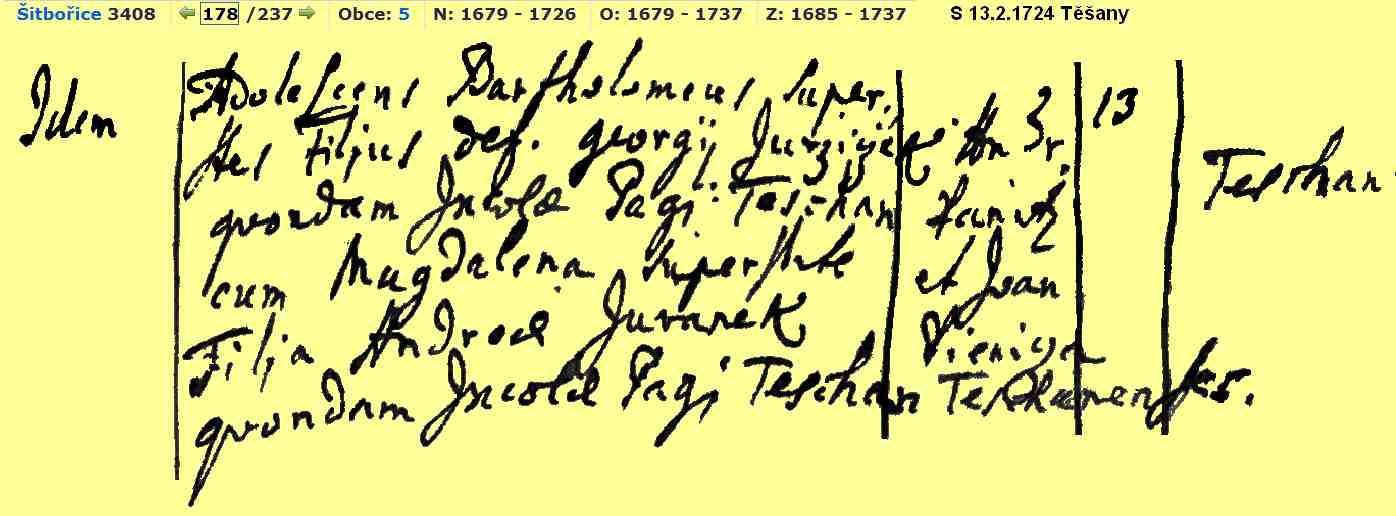 Šitbořice 3408 178 /237 Obce: 5 N: 1679 - 1726 O: 1679 - 1737 Z: 1685 - 1737 S 13.2.1724 Těšany
Idem
Adolescens Bartholomeus super,
stes Filius def. georgij
quondam Incolæ Pagi Teschan
cum Magdalena superstite
Filia Andreæ Juranek
quondam Incolæ Pagi Teschan
et Joan
Teschanenses.
13
Teschan